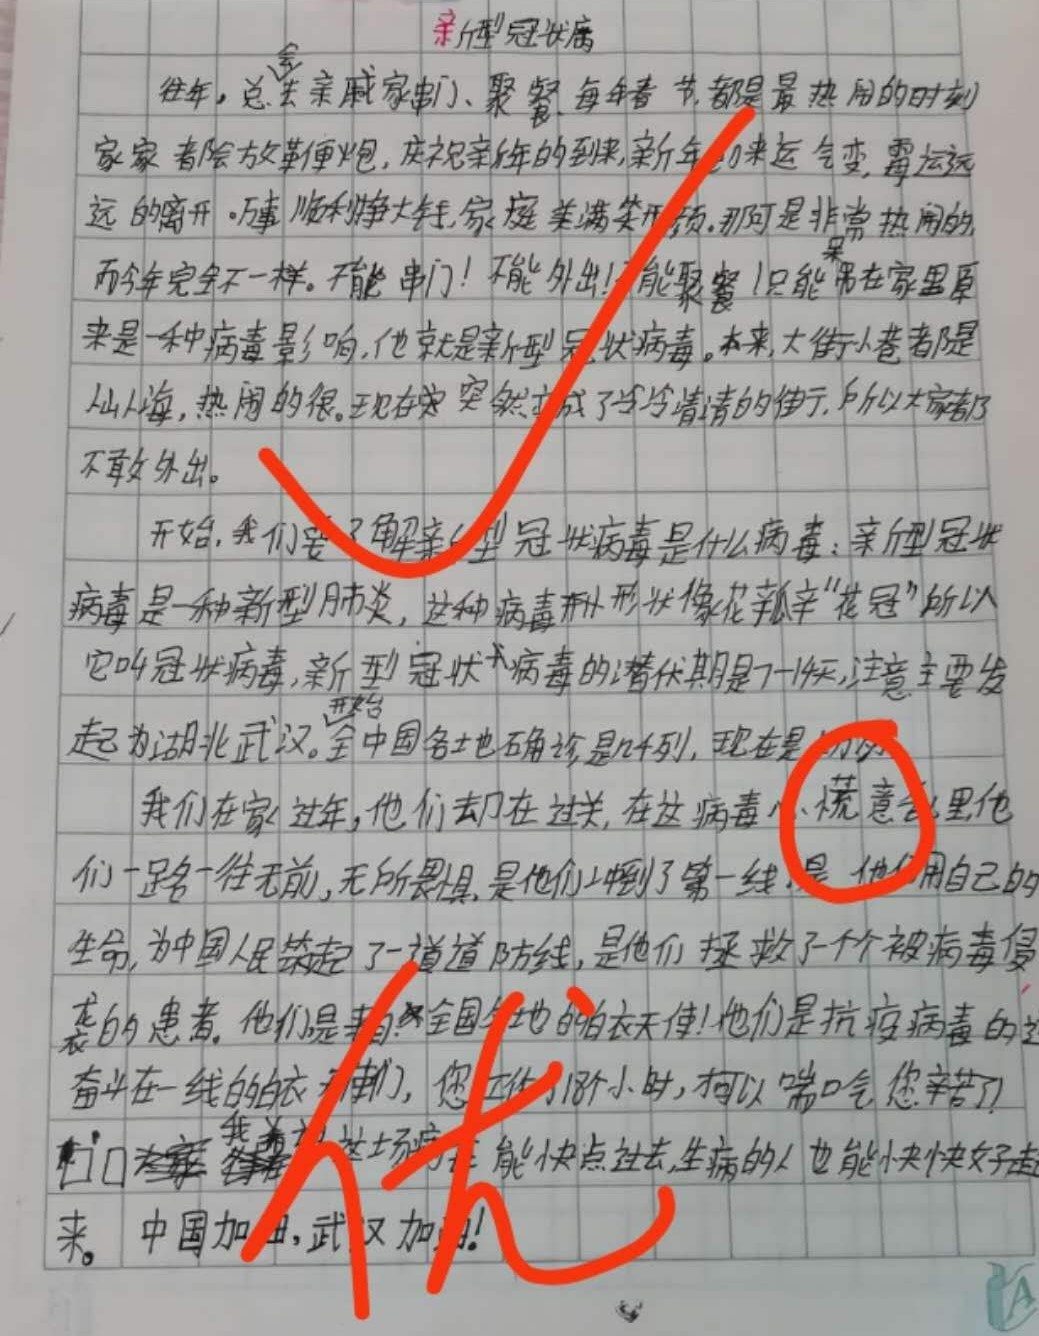 亲新型冠状病
往年，总会去亲戚家串门、聚餐，每年春节都是最热闹的时刻
家家都会放革便炮，庆祝新年的到来，新年到来运气变，霉运远
远的离开。万事顺利挣大钱，家庭美满笑开颜。那可是非常热闹的，
而今年完全不一样。不能串门！不能外出！不能聚餐！只能呆在家里原
来是一种病毒影响，他就是亲新型冠状病毒。本来，大街小巷都是
人山人海，热闹的很。现在突然变成了冷冷清清的街，所以大家都
不敢外出。
开始，我们要了解新型冠状病毒是什么病毒：新型冠状
病毒是一种新型肺炎，这种病毒形状像花瓣“花冠”所以
它叫冠状病毒，新型冠状病毒的潜伏期是7-14天，注意主要发
起为湖北武汉。开始全中国各地确诊是几千列，现在是
我们在家过年，他们却在过关，在这病毒 慌意 里，他
们一路一往无前，无所畏惧，是他们冲到了第一线，是他们用自己的
生命，为中国人民筑起了一道道防线，是他们拯救了一个个被病毒侵
袭的患者。他们是来自全国各地的白衣天使！他们是抗疫病毒的
奋斗在一线的白衣天使们，您工作了18个小时，才可以喘口气您辛苦了！
我希望这场病毒能快点过去，生病的人也能快快好起
来。中国加油，武汉加油！
优